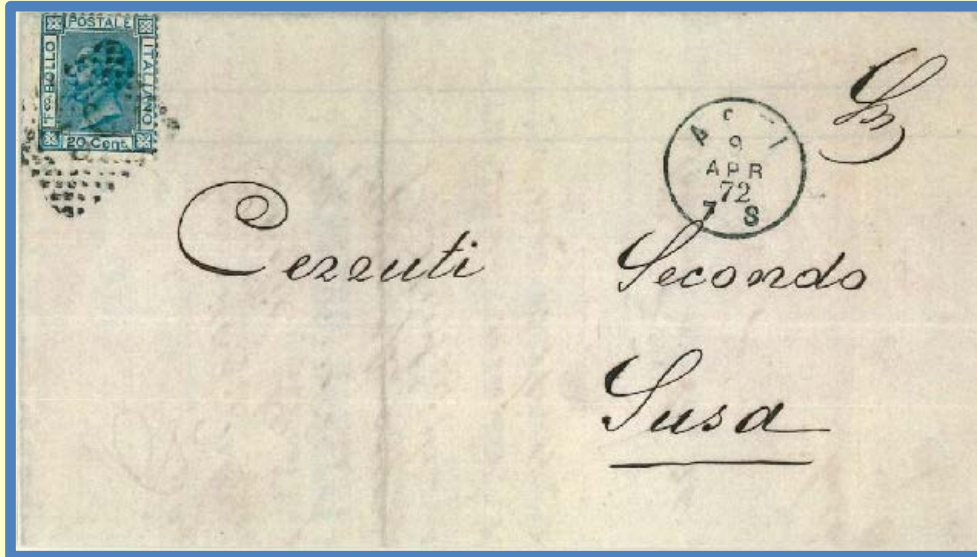 POSTALE
BOLLO
ITALIANO
20 Cent.
9
APR
72
7 S
Cerruti Secondo
Susa